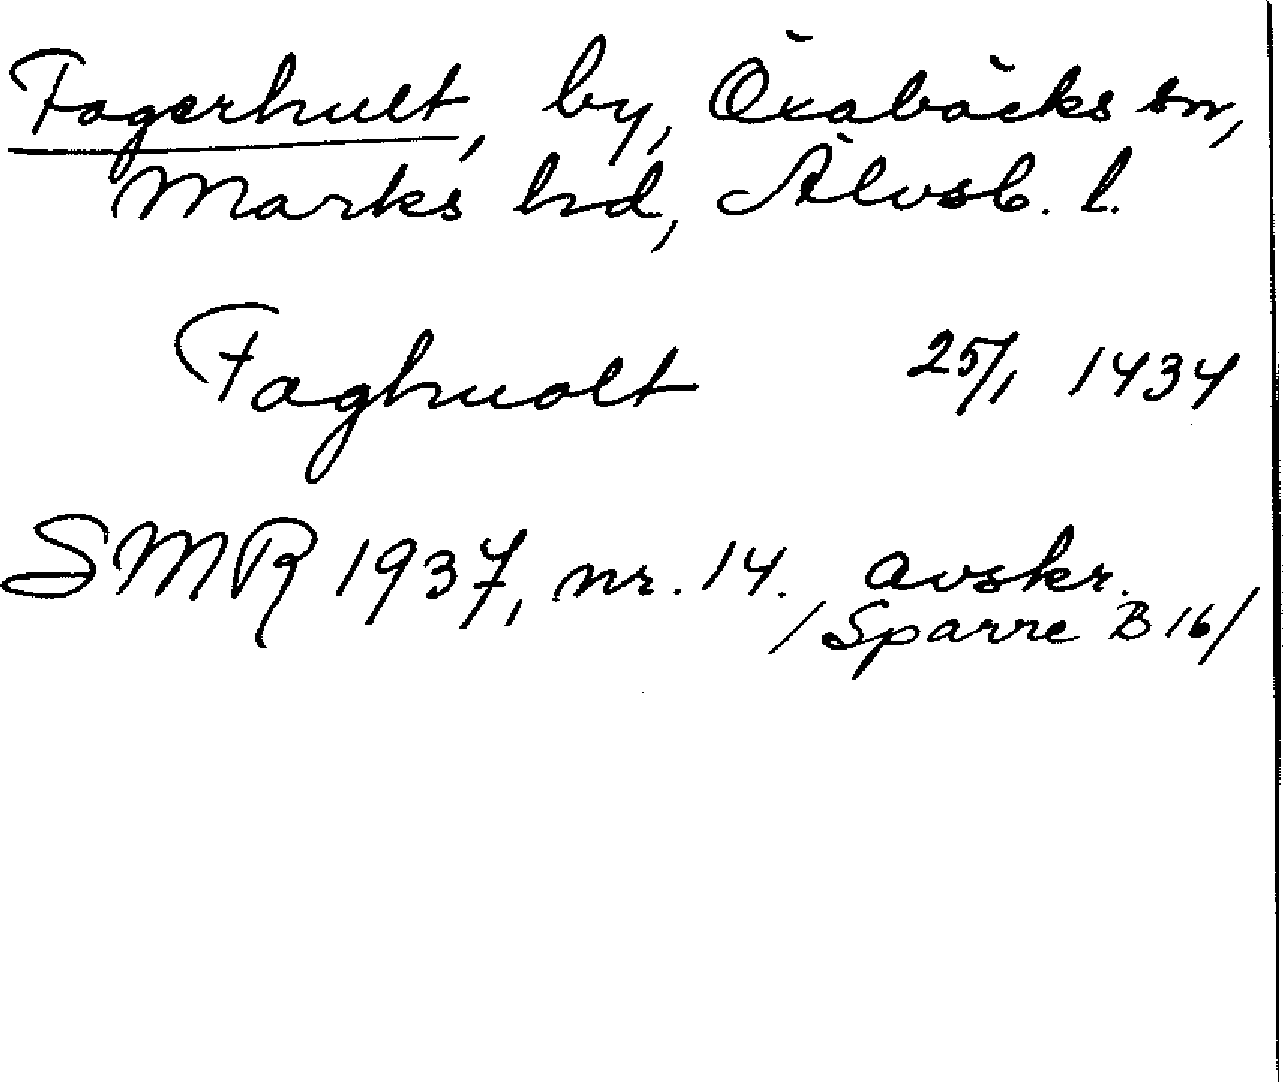 Fagerhult, by, Öxabäcks sn,
Marks hd, Älvsb. l.
Faghualt 25/1 1434
SMR 1937, nr. 14. avskr.
/Sparre B 16/